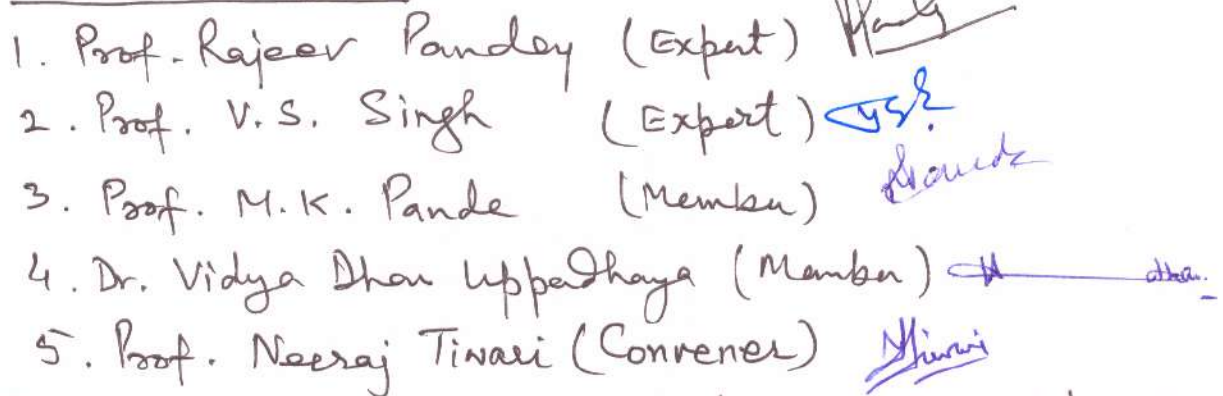 1. Prof. Rajeev Pandey (Expert)
2. Prof. V. S. Singh (Expert)
3. Prof. M. K. Pande (Member)
4. Dr. Vidya Dhar Uppadhaya (Member)
5. Prof. Neeraj Tiwari (Convener)